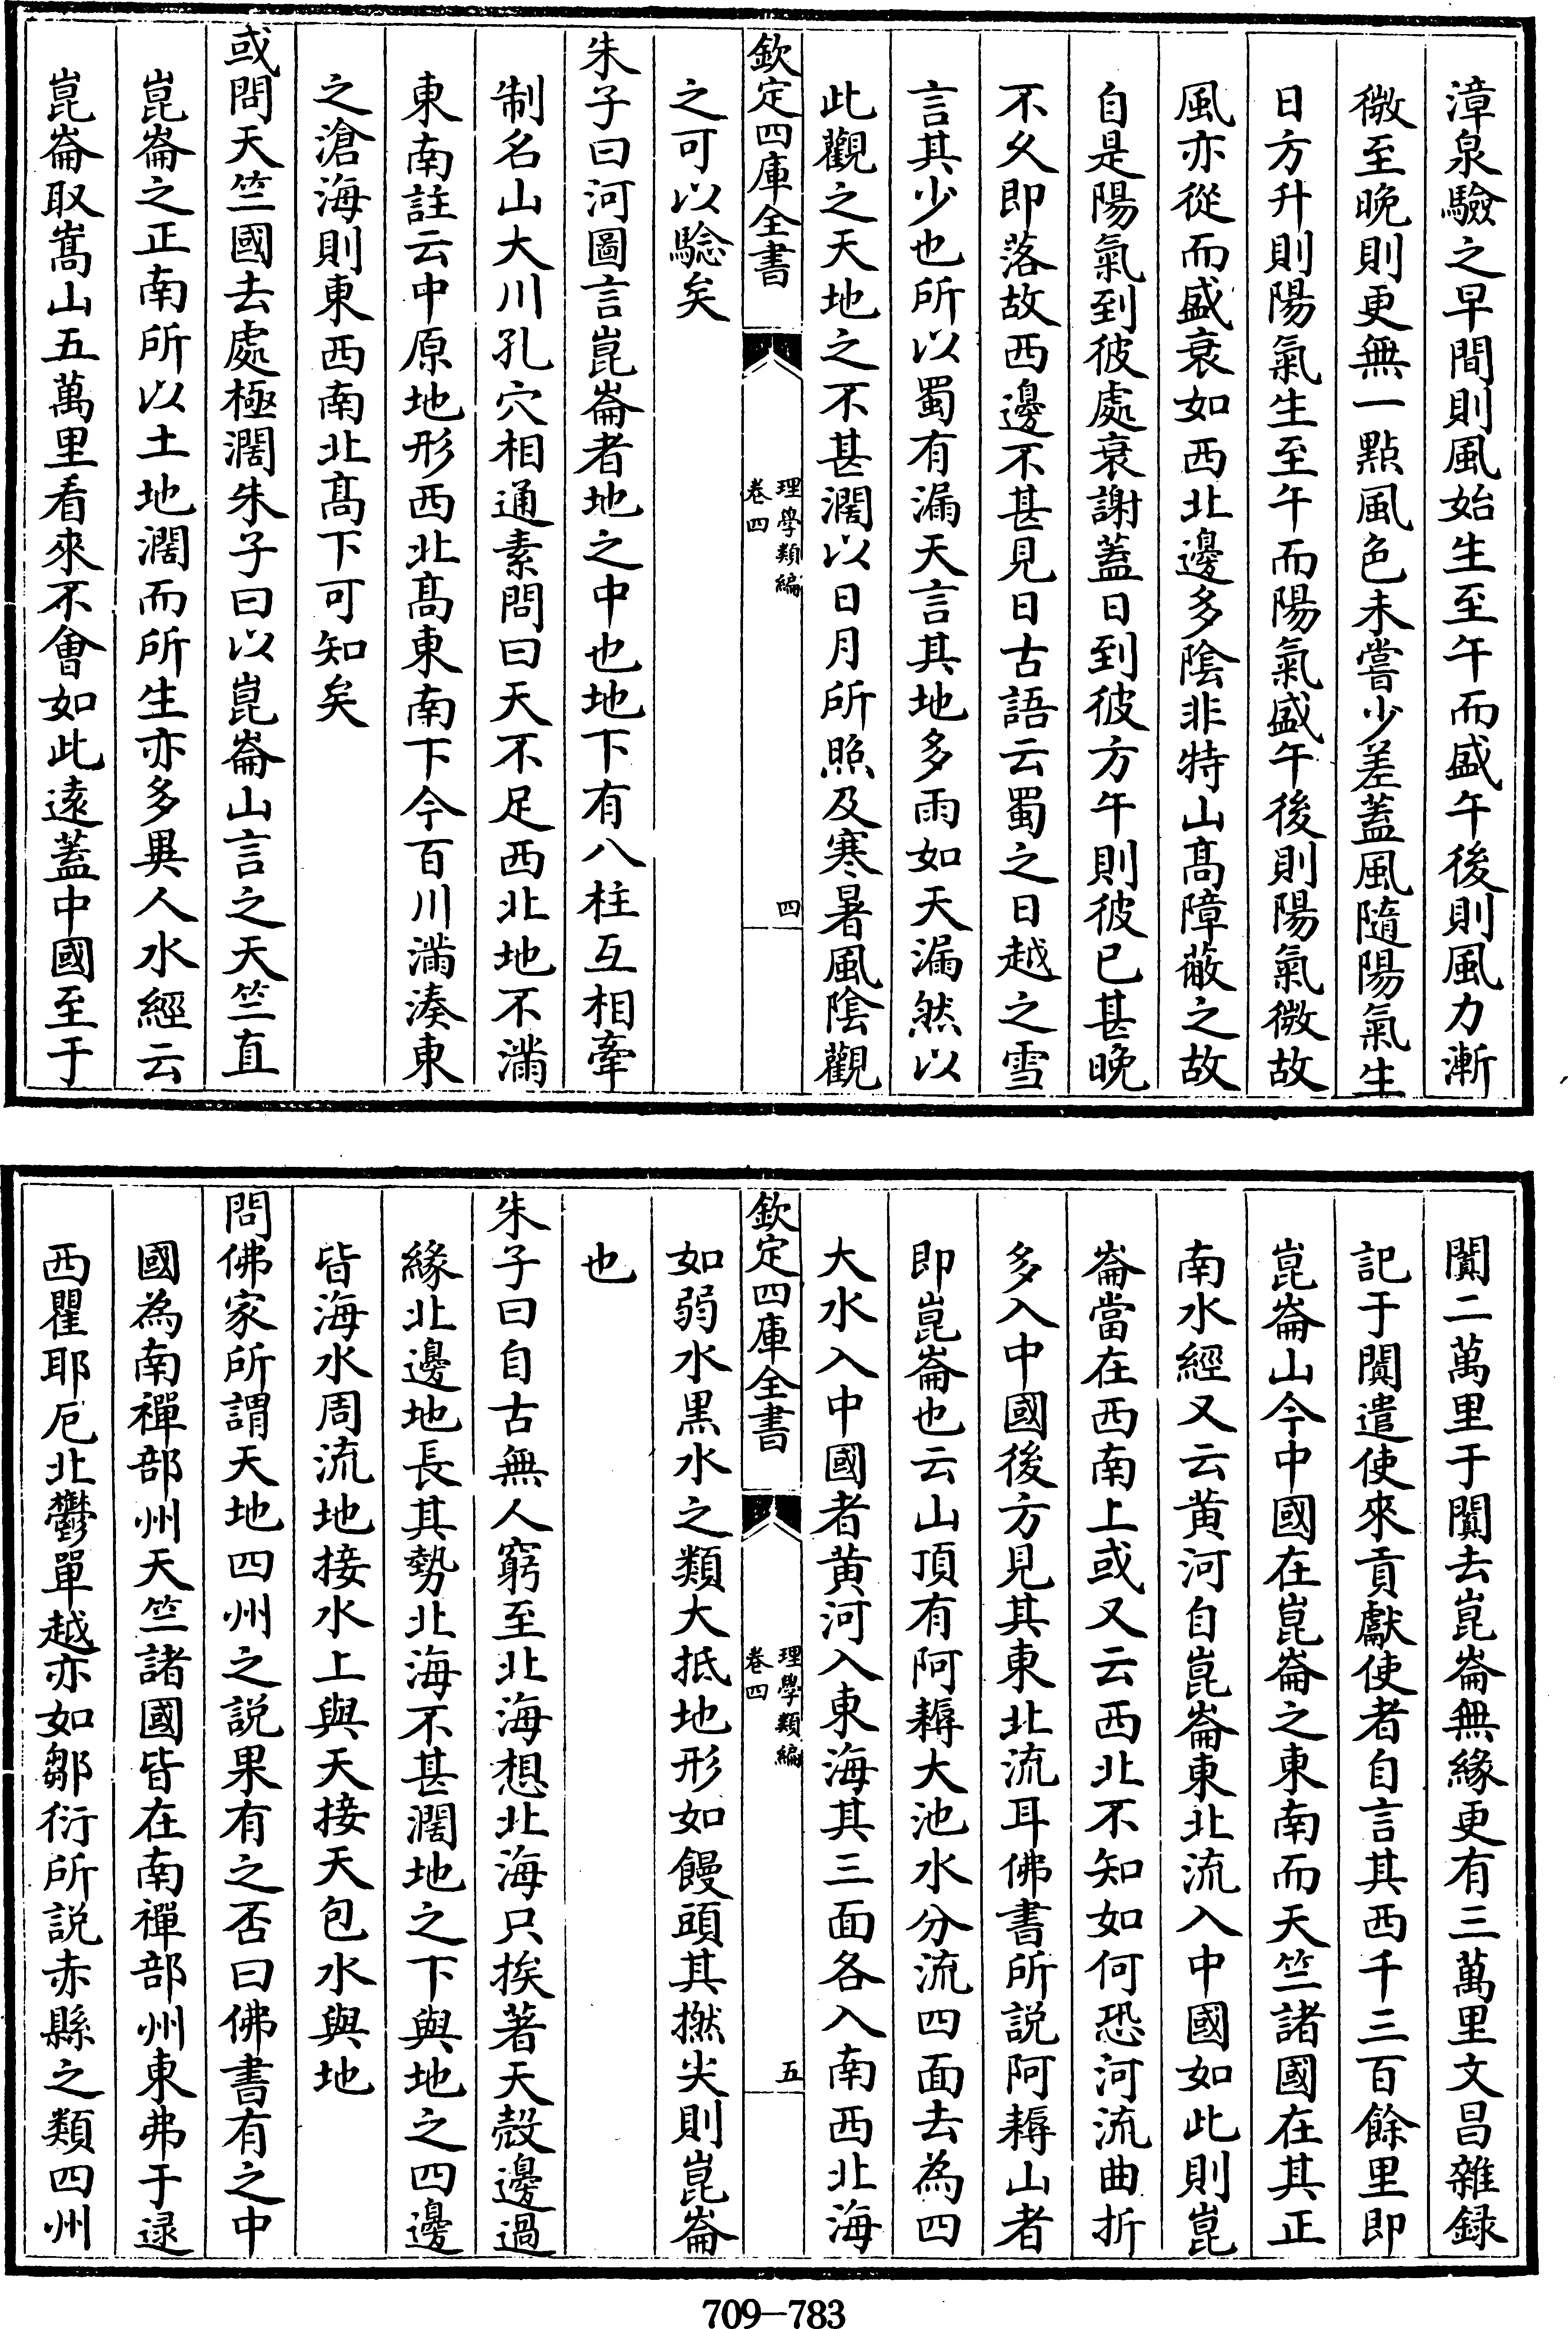 漳泉驗之早間則風始生至午而盛午後則風力漸
微至晚則更無一點風色未嘗少差蓋風隨陽氣生
日方升則陽氣生至午而陽氣盛午後則陽氣微故
風亦從而盛衰如西北邊多陰非特山髙障蔽之故
自是陽氣到彼處衰謝蓋日到彼方午則彼已甚晚
不久即落故西邊不甚見日古語云蜀之日越之雪
言其少也所以蜀有漏天言其地多雨如天漏然以
此觀之天地之不甚濶以日月所照及寒暑風陰觀
欽定四庫全書
理學類編
卷四
四
之可以驗矣
朱子曰河圖言崑崙者地之中也地下有八柱互相牽
制名山大川孔穴相通素問曰天不足西北地不滿
東南註云中原地形西北髙東南下今百川滿湊東
之滄海則東西南北髙下可知矣
或問天竺國去處極濶朱子曰以崑崙山言之天竺直
崑崙之正南所以土地濶而所生亦多異人水經云
崑崙取嵩山五萬里看來不會如此逺蓋中國至于
闐二萬里于闐去崑崙無緣更有三萬里文昌雜録
記于闐遣使來貢獻使者自言其西千三百餘里即
崑崙山今中國在崑崙之東南而天竺諸國在其正
南水經又云黄河自崑崙東北流入中國如此則崑
崙當在西南上或又云西北不知如何恐河流曲折
多入中國後方見其東北流耳佛書所説阿耨山者
即崑崙也云山頂有阿耨大池水分流四面去為四
大水入中國者黄河入東海其三面各入南西北海
欽定四庫全書
理學類編
卷四
五
如弱水黒水之類大抵地形如饅頭其撚尖則崑崙
也
朱子曰自古無人窮至北海想北海只挨著天殼邊過
緣北邊地長其勢北海不甚濶地之下與地之四邊
皆海水周流地接水上與天接天包水與地
問佛家所謂天地四州之説果有之否曰佛書有之中
國為南禪部州天竺諸國皆在南禪部州東弗于逯
西瞿耶尼北鬱單越亦如鄒衍所説赤縣之類四州
709—783